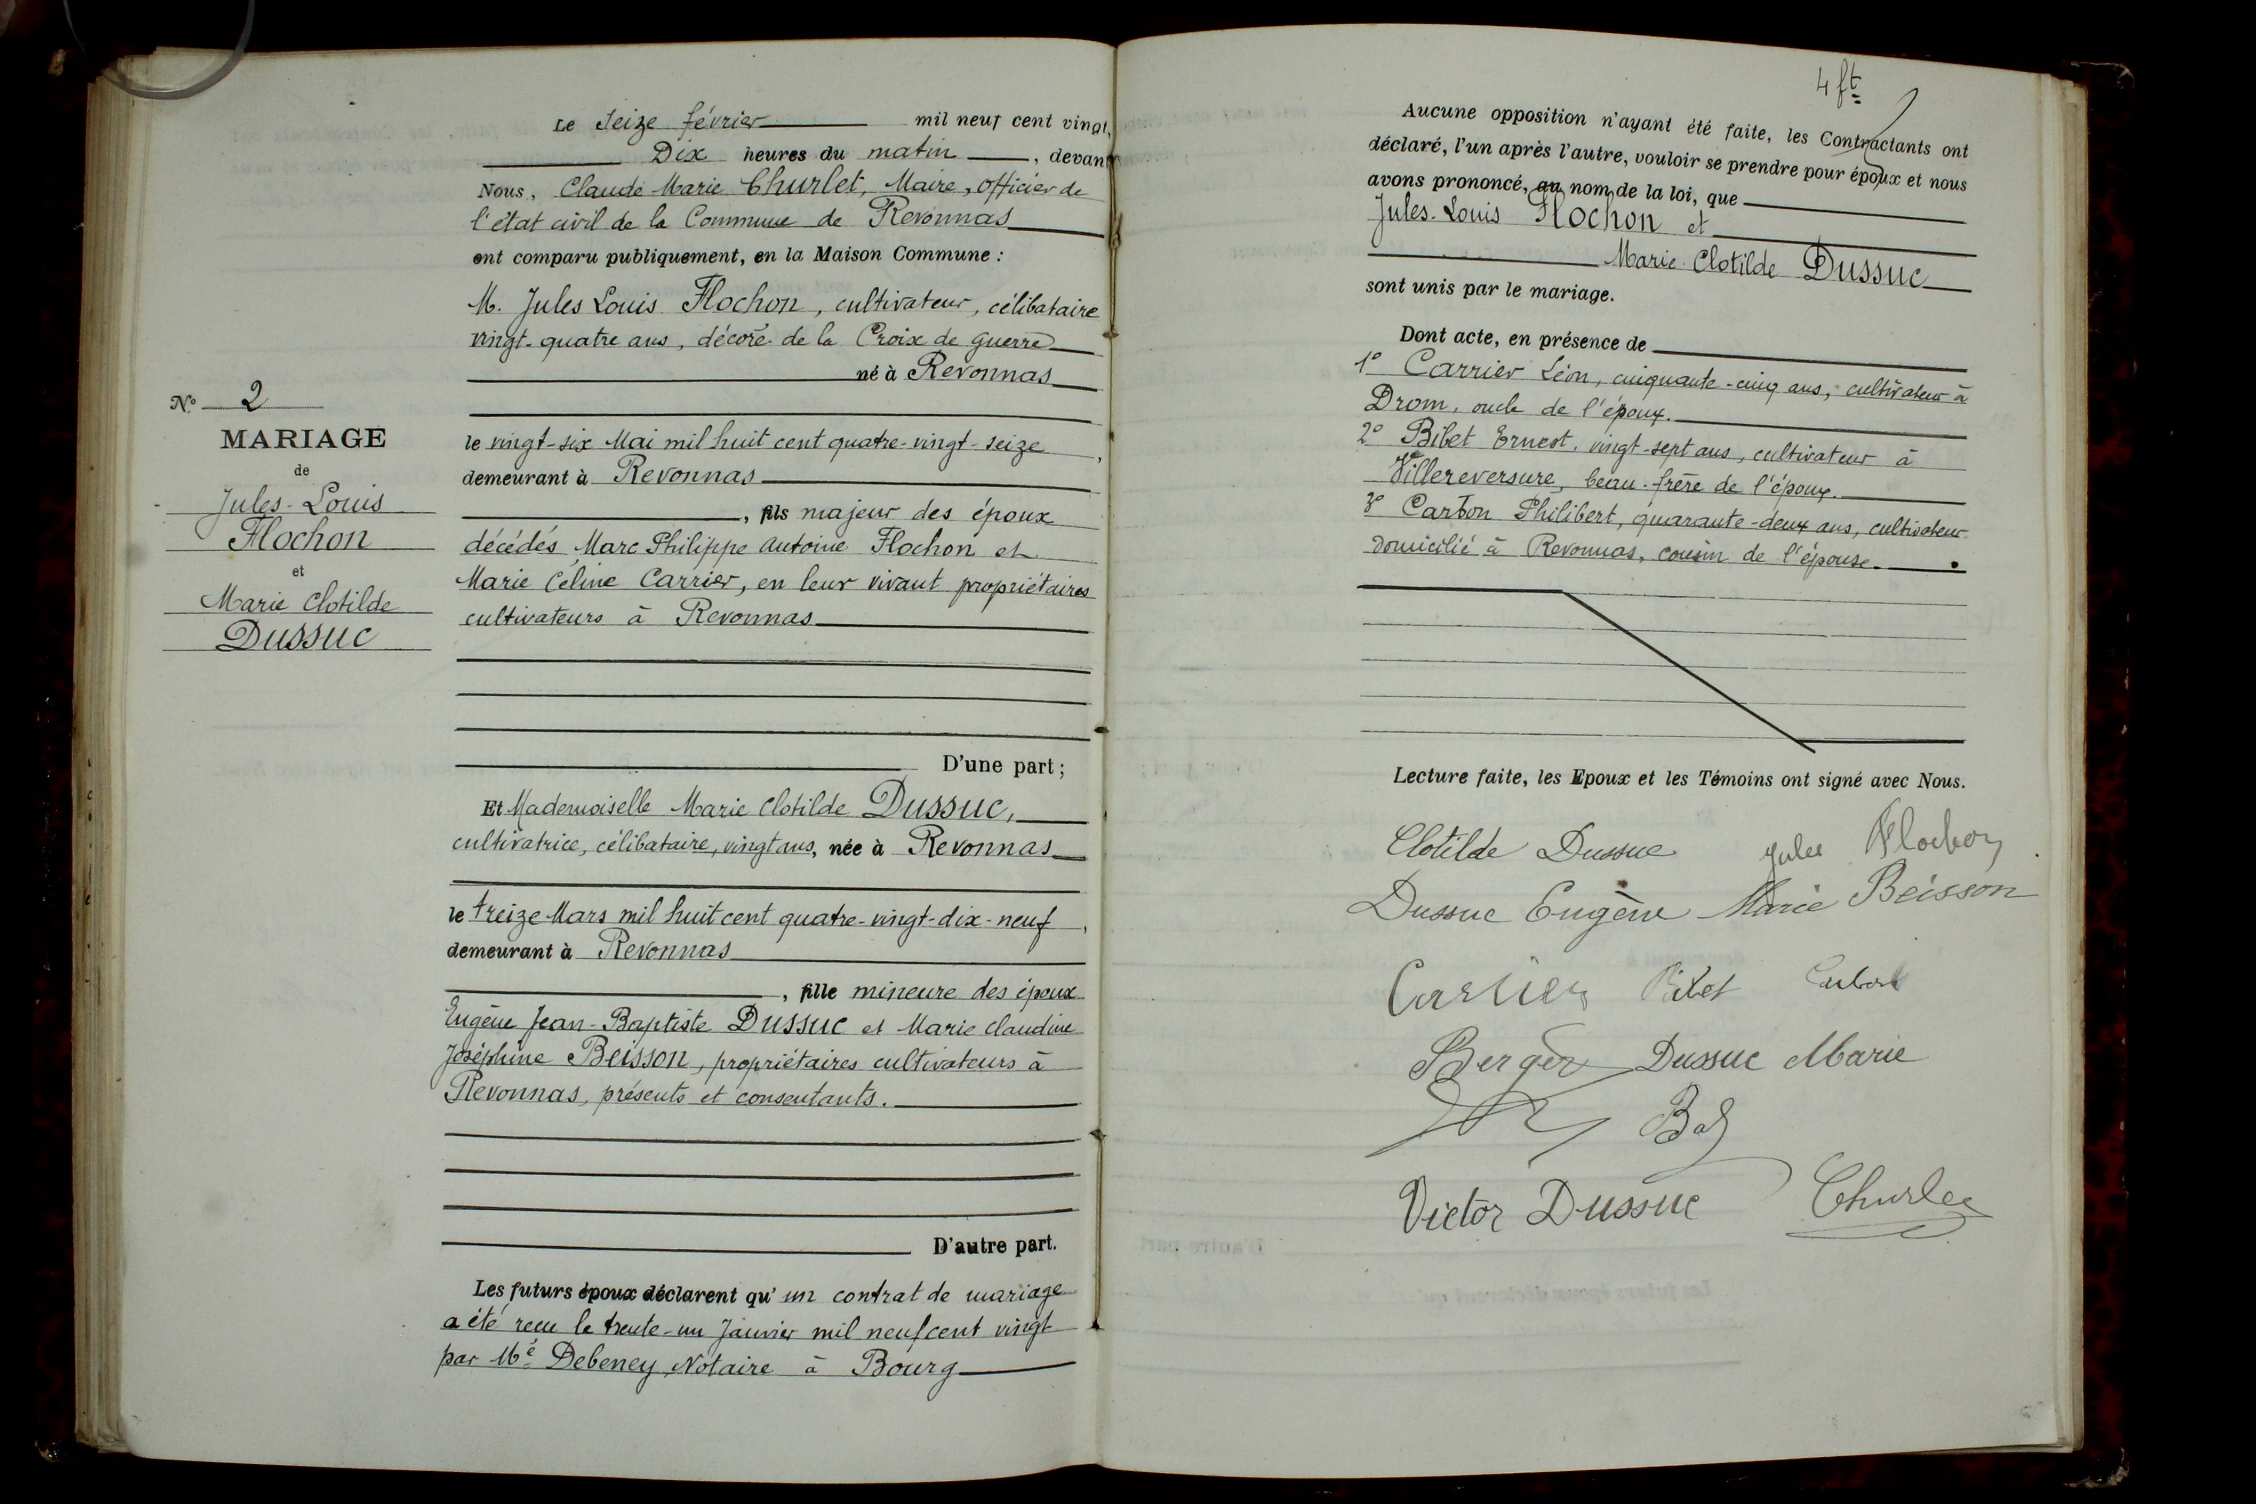 Le Seize février mil neuf cent vingt,
Dix heures du matin, devant
Nous, Claude Marie Churlet, Maire, officier de
l'état civil de la Commune de Revonnas
ont comparu publiquement, en la Maison Commune :
M. Jules Louis Flochon, cultivateur, célibataire
vingt-quatre ans, décoré de la Croix de guerre
né à Revonnas
le vingt-six Mai mil huit cent quatre-vingt-seize,
demeurant à Revonnas
, fils majeur des époux
décédés, Marc Philippe Antoine Flochon et
Marie Céline Carrier, en leur vivant propriétaires
cultivateurs à Revonnas
D'une part ;
Et Mademoiselle Marie Clotilde Dussuc,
cultivatrice, célibataire, vingt ans, née à Revonnas
le treize Mars mil huit cent quatre-vingt-dix-neuf,
demeurant à Revonnas
, fille mineure des époux
Eugène Jean-Baptiste Dussuc et Marie Claudine
Joséphine Beisson, propriétaires cultivateurs à
Revonnas, présents et consentants.
D'autre part.
Les futurs époux déclarent qu'un contrat de mariage
a été reçu le trente-un Janvier mil neuf cent vingt
par Me Debeney, Notaire à Bourg
No 2
MARIAGE
de
Jules-Louis
Flochon
et
Marie Clotilde
Dussuc
4 ft
Aucune opposition n'ayant été faite, les Contractants ont
déclaré, l'un après l'autre, vouloir se prendre pour époux et nous
avons prononcé, au nom de la loi, que
Jules-Louis Flochon et
Marie Clotilde Dussuc
sont unis par le mariage.
Dont acte, en présence de
1° Carrier Léon, cinquante-cinq ans, cultivateur à
Drom, oncle de l'époux.
2° Bibet Ernest, vingt-sept ans, cultivateur à
Villereversure, beau-frère de l'époux.
3° Carbon Philibert, quarante-deux ans, cultivateur
domicilié à Revonnas, cousin de l'épouse.
Lecture faite, les Epoux et les Témoins ont signé avec Nous.
Clotilde Dussuc Jules Flochon
Dussuc Eugène Marie Beisson
Carrier Bibet Carbon
Berger Dussuc Marie
Victor Dussuc Churlet